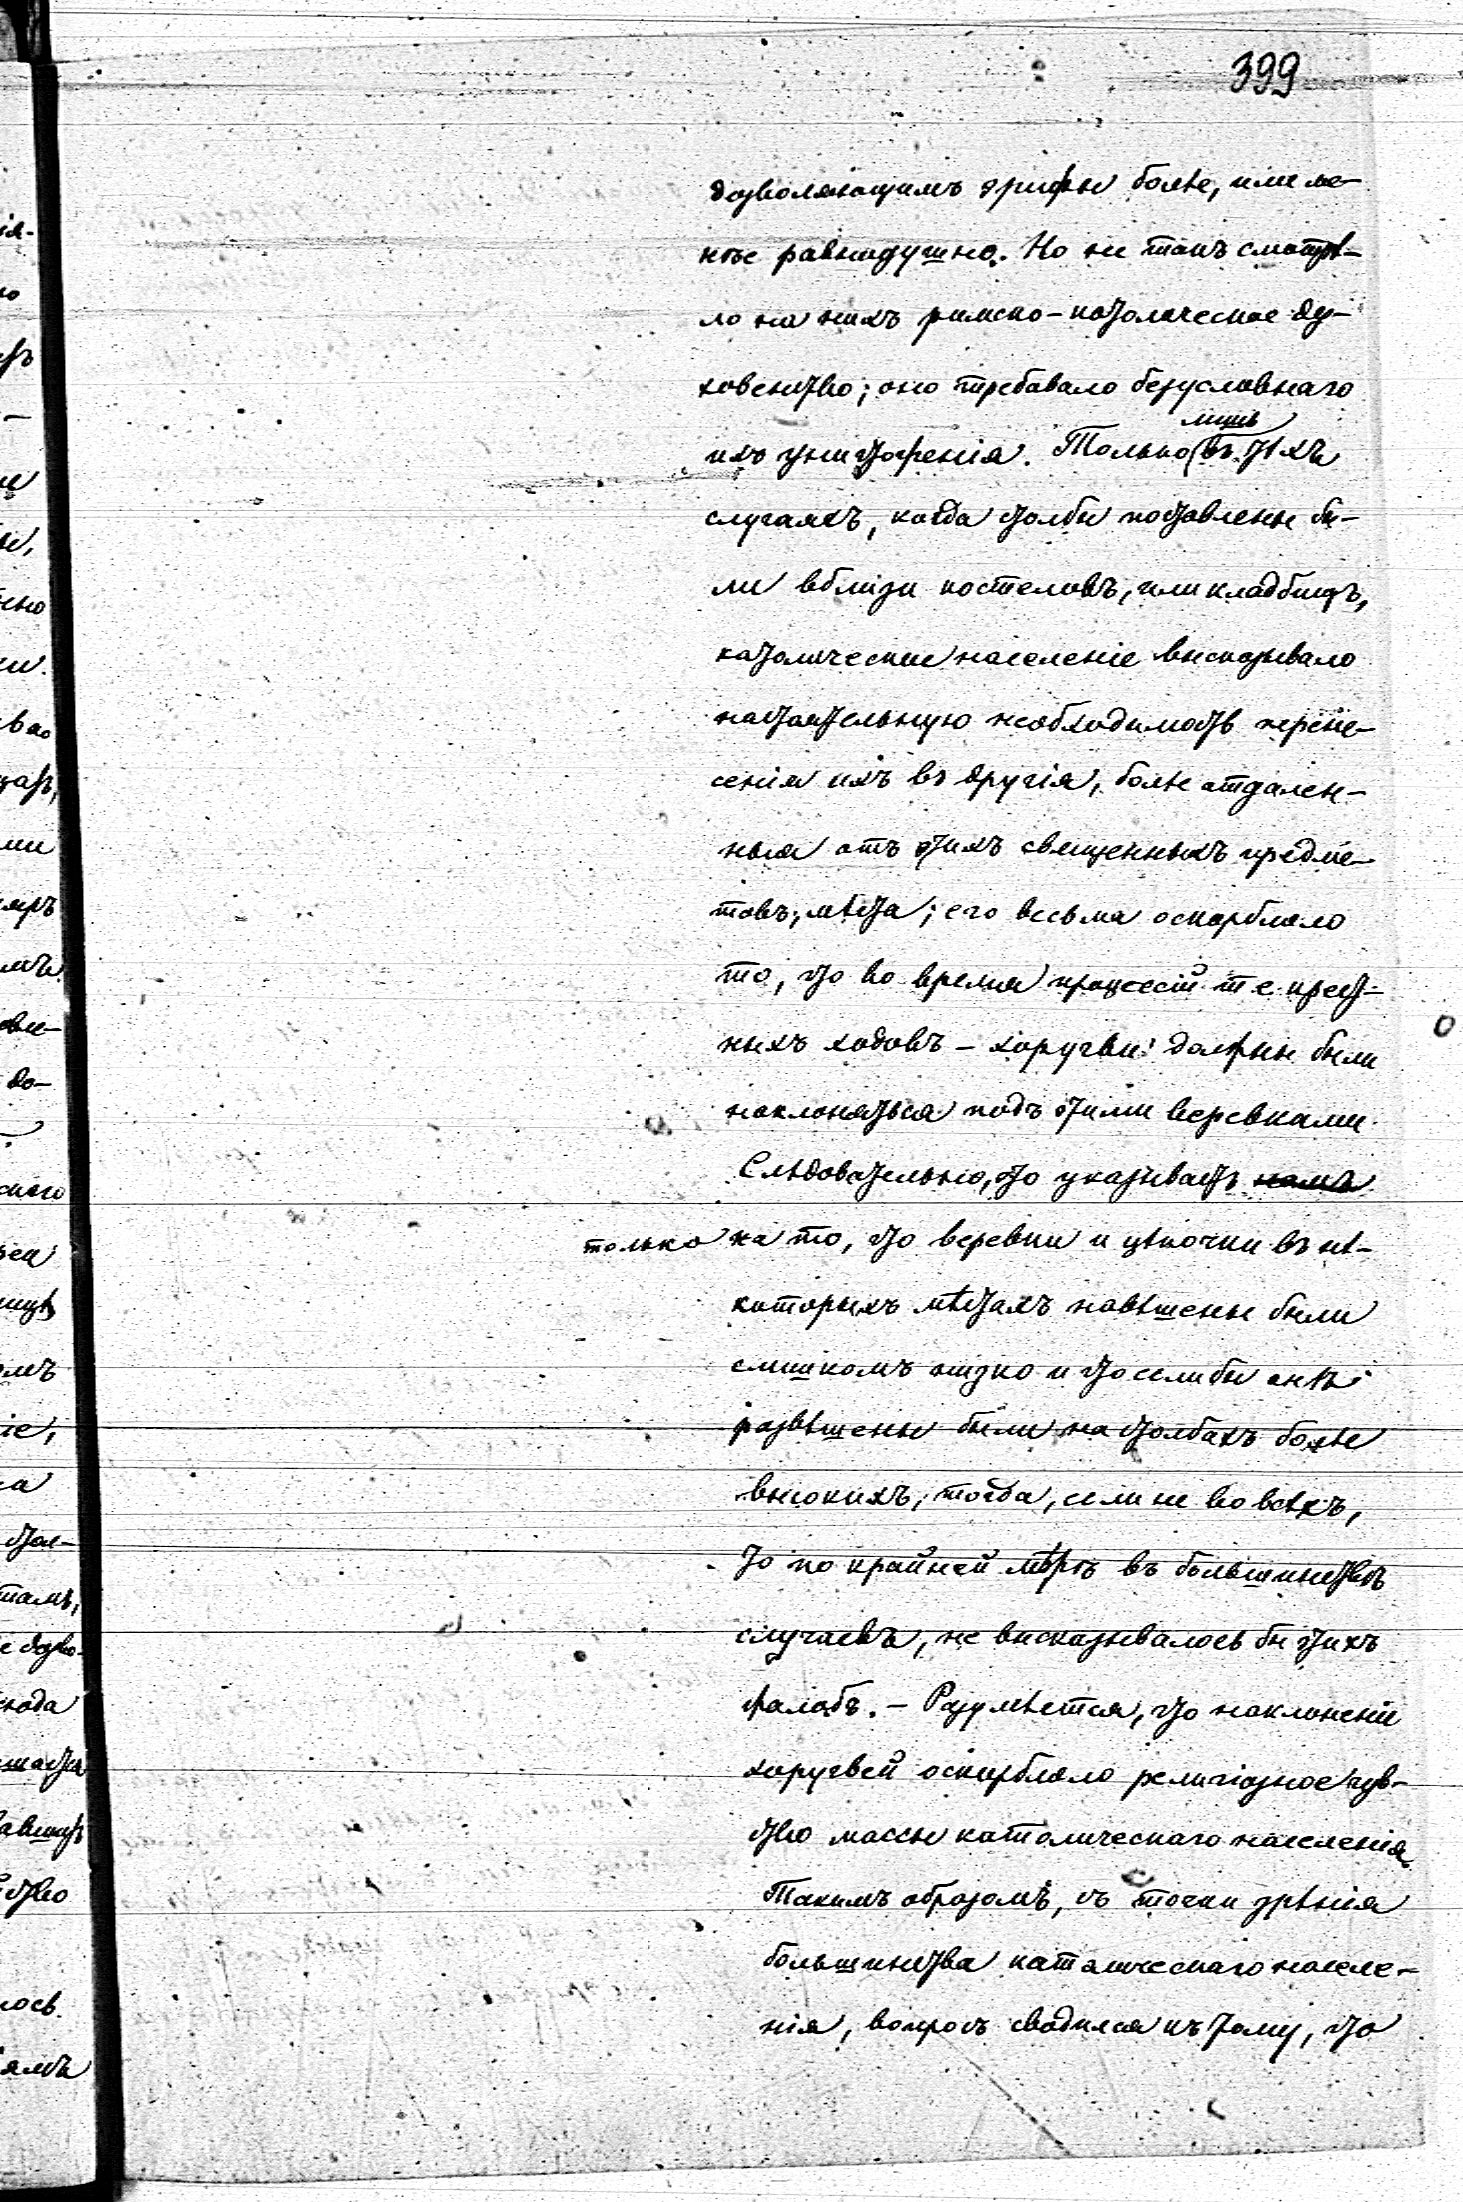 399
дозволяющимъ эрифы болѣе, или ме-
нѣе равнодушно. Но не такъ смотрѣ-
ло на нихъ римско-католическое ду-
ховенство; оно требовало безусловнаго
лишь
ихъ уничтоженія. Только въ тѣхъ
случаяхъ, когда столбы поставлены бы-
ли вблизи костеловъ, или кладбищъ,
католическое населеніе высказывало
настоятельную необходимость перене-
сенія ихъ въ другія, болѣе отдален-
ныя отъ этихъ священныхъ предме-
товъ, мѣста; его весьма оскорбляло
то, что во время процессій т е крест-
ныхъ ходовъ – хоругви должны были
наклоняться подъ этими веревками
Слѣдовательно, это указываетъ намъ
только на то, что веревки и цѣпочки въ нѣ-
которыхъ мѣстахъ навѣшены были
слишкомъ низко и что если бы онѣ
развѣшены были на столбахъ болѣе
высокихъ, тогда, если не во всѣхъ,
то по крайней мѣрѣ въ большинствѣ
случаевъ, не высказывалось бы этихъ
жалобъ. – Разумѣется, что наклоненіе
хоругвей оскорбляло религіозное чув-
ство массы католическаго населенія
Такимъ образомъ, съ точки зрѣнія
большинства католическаго населе-
нія, вопросъ сводился къ тому, что